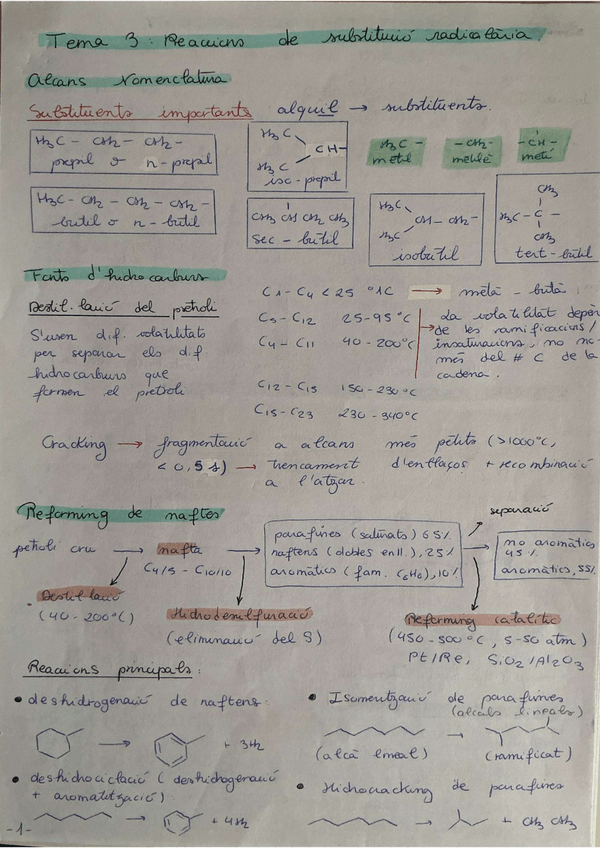 Tema 3: Reaccions de substitució radicalària.
Alcans Nomenclatura
Substituents importants alquil → substituents.
H3C - CH2 - CH2 -
propil o n-propil
H3C
CH-
H3C
iso-propil
H3C -
metil
-CH2-
metilè
-CH-
metí
H3C - CH2 - CH2 - CH2 -
butil o n-butil
CH3 CH CH2 CH3
sec-butil
H3C
CH - CH2 -
H3C
isobutil
CH3
H3C - C -
CH3
tert-butil
Fonts d'hidrocarburs
Destil·lació del petroli
S'usen dif. volatilitats
per separar els dif
hidrocarburs que
formen el petroli
C1-C4 < 25 °C → metà - butà
C5-C12 25-95 °C
C4-C11 40-200°C
C12-C15 150-230°C
C15-C23 230-340°C
La volatilitat depèn
de les ramificacions/
insaturacions, no no-
més del # C de la
cadena.
Cracking → fragmentació a alcans més petits (>1000°C,
< 0,5 s) → trencament d'enllaços + recombinació
a l'atzar.
Reforming de naftes
petroli cru → nafta
C4/5 - C10/10
parafines (saturats) 65%
naftens (dobles enll.), 25%
aromàtics (fam. C6H6), 10%
separació
no aromàtics
45%
aromàtics, 55%
Destil·lació
(40-200°C)
Hidrodesulfuració
(eliminació del S)
Reforming catalític
(450-500°C, 5-50 atm)
Pt/Re, SiO2/Al2O3
Reaccions principals:
• deshidrogenació de naftens
→ + 3H2
• deshidrociclació (deshidrogenació
+ aromatització)
→ + 4H2
• Isomerització de parafines
(alcans lineals)
→
(alcà lineal) (ramificat)
• Hidrocracking de parafines
→ + CH3 CH3
-1-